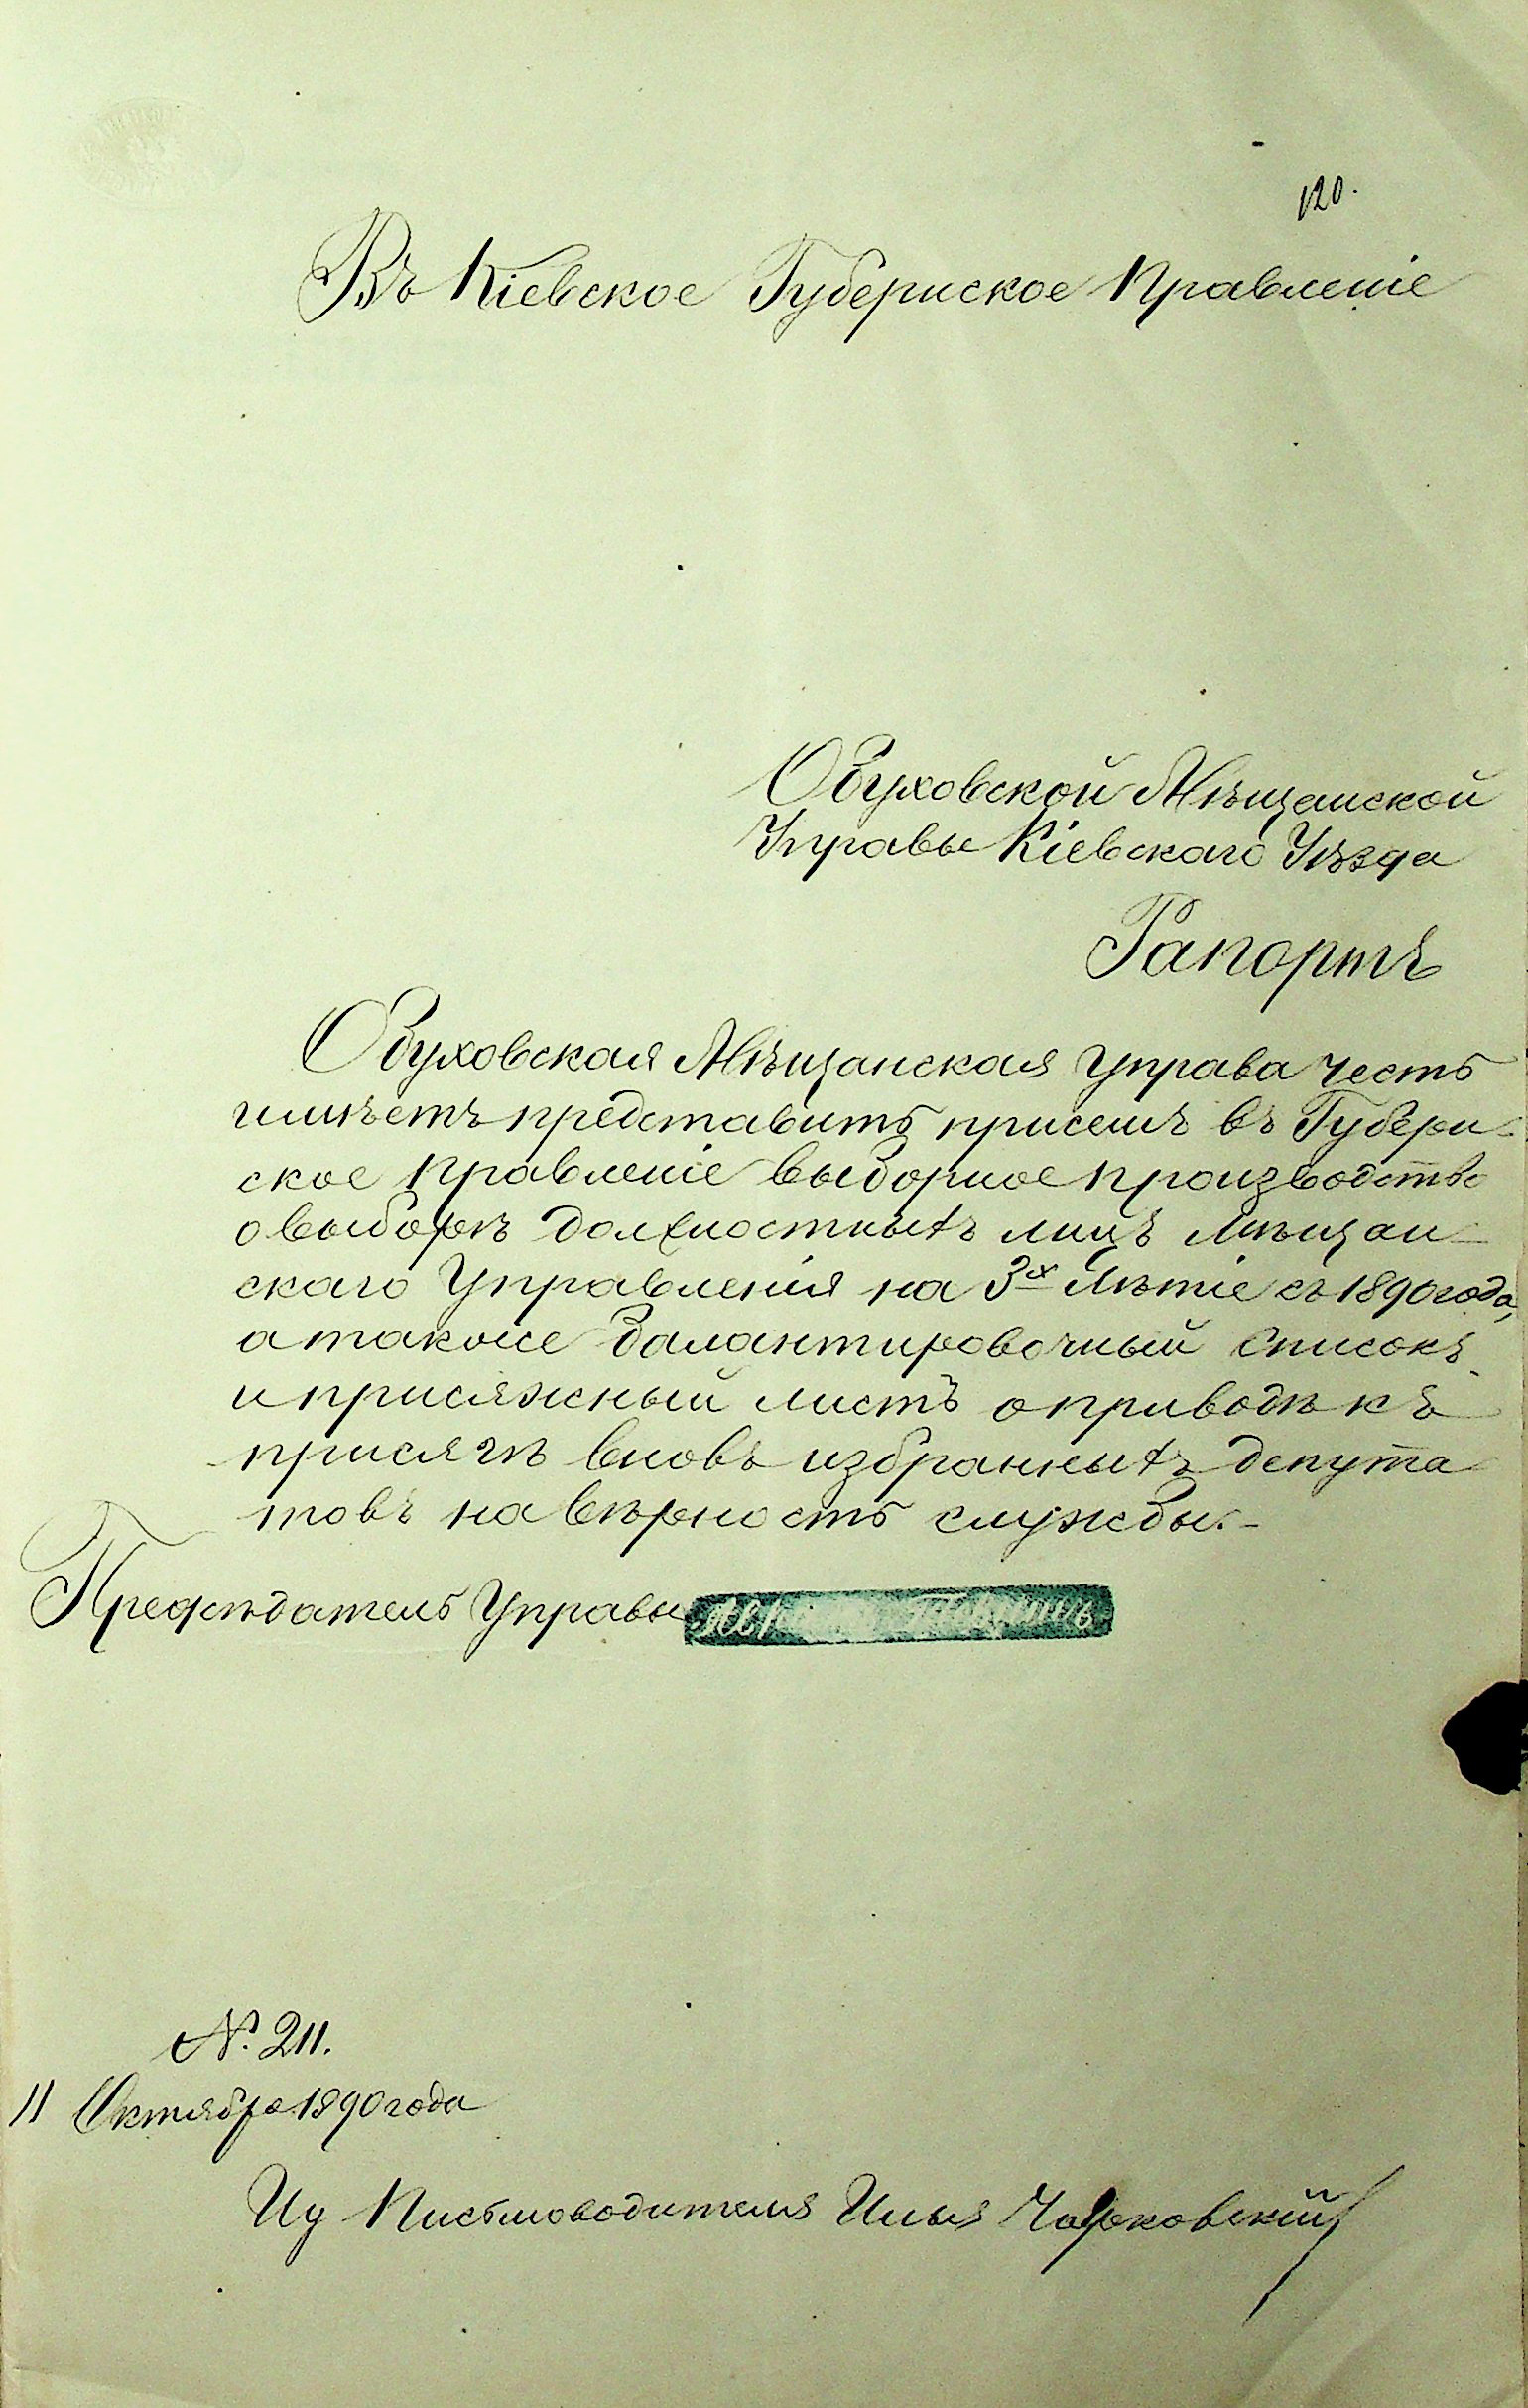 120.
Въ Кіевское Губернское Правленіе
Обуховской Мѣщанской
Управы Кіевскаго Уѣзда
Рапортъ
Обуховская Мѣщанская Управа честь
имѣетъ представить присемъ въ Губерн-
ское Правленіе выборное производство
о выборѣ должностныхъ лицъ мѣщан-
скаго Управленія на 3х лѣтіе съ 1890 года,
а также балантировочный списокъ
и присяжный листъ о приводѣ къ
присягѣ вновь избранныхъ депута
товъ на вѣрность службы.-
Предсѣдатель Управы
№. 211.
11 Октября 1890 года
Иу Письмоводителя Илья